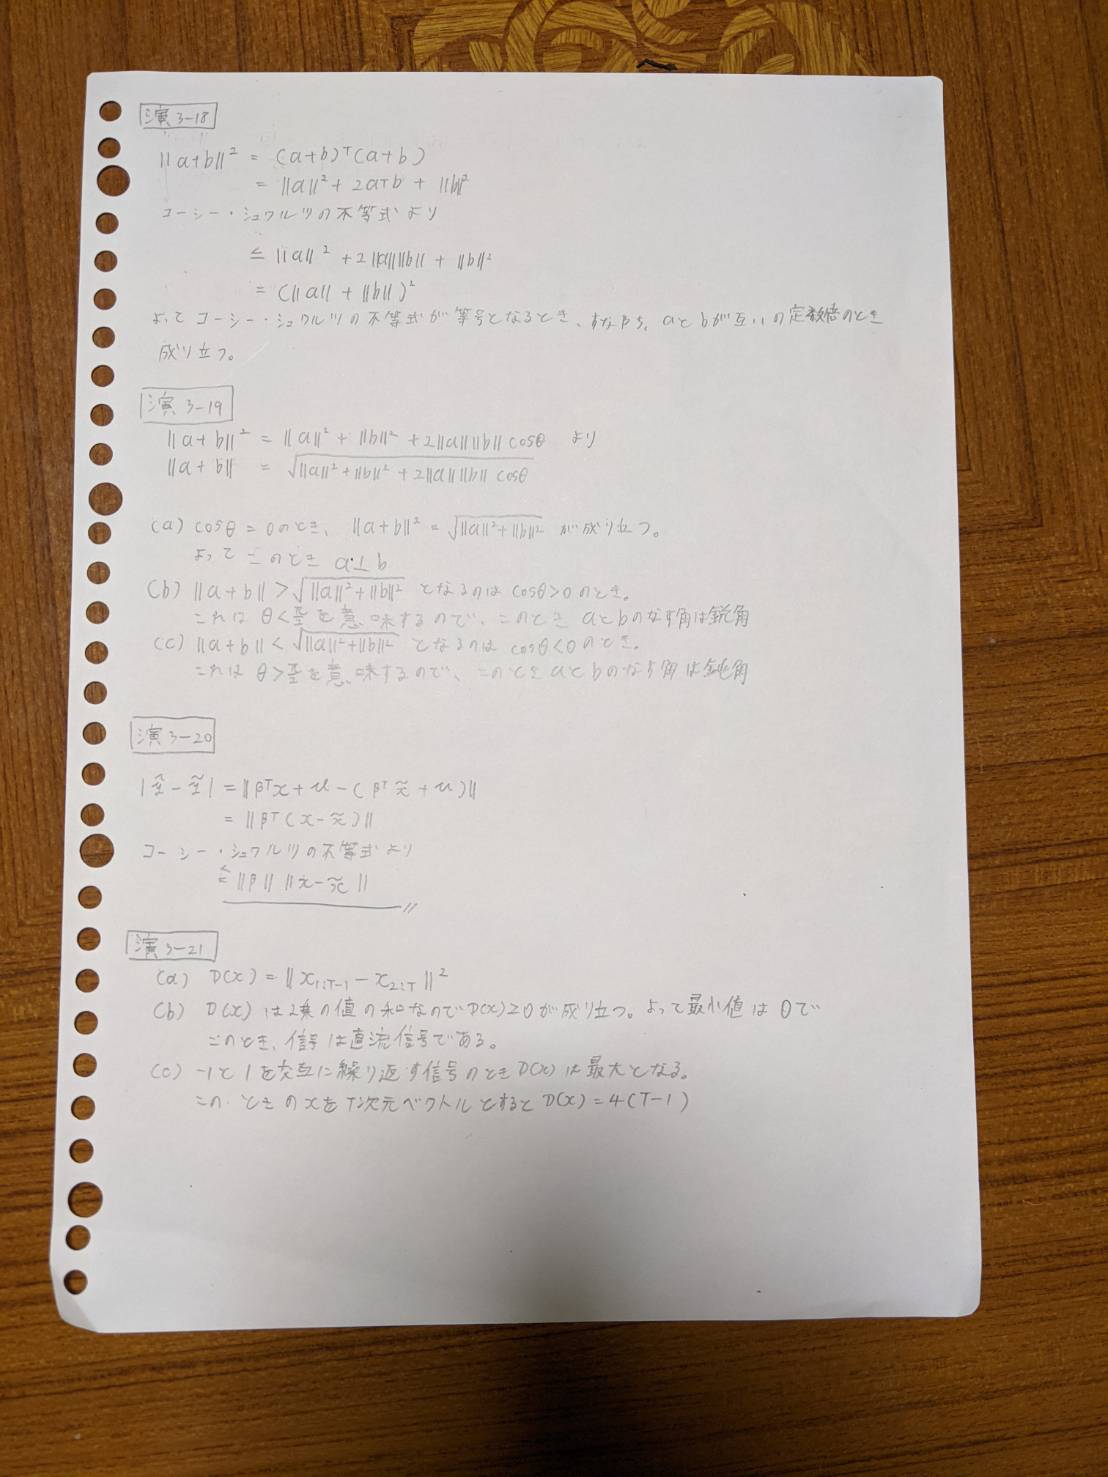 演3-18
||a+b||² = (a+b)ᵀ(a+b)
= ||a||² + 2aᵀb + ||b||²
コーシー・シュワルツの不等式より
≤ ||a||² + 2||a||||b|| + ||b||²
= (||a|| + ||b||)²
よってコーシー・シュワルツの不等式が等号となるとき、すなわち、aとbが互いの定数倍のとき
成り立つ。
演3-19
||a+b||² = ||a||² + ||b||² + 2||a||||b|| cosθ より
||a+b|| = √(||a||² + ||b||² + 2||a||||b|| cosθ)
(a) cosθ = 0のとき、||a+b||² = √(||a||²+||b||²) が成り立つ。
よってこのとき a⊥b
(b) ||a+b|| > √(||a||²+||b||²) となるのは cosθ>0のとき。
これは θ<π/2を意味するので、このとき aとbのなす角は鋭角
(c) ||a+b|| < √(||a||²+||b||²) となるのは cosθ<0のとき。
これは θ>π/2を意味するので、このとき aとbのなす角は鈍角
演3-20
= ||βᵀx+v-(βᵀx̃+v)||
= ||βᵀ(x-x̃)||
コーシー・シュワルツの不等式より
≤ ||β|| ||x-x̃||
演3-21
(a) D(x) = ||x₁:T-1 - x₂:T||²
(b) D(x)は2乗の値の和なのでD(x)≥0が成り立つ。よって最小値は0で
このとき、信号は直流信号である。
(c) -1と1を交互に繰り返す信号のときD(x)は最大となる。
このときのxをT次元ベクトルとするとD(x)=4(T-1)